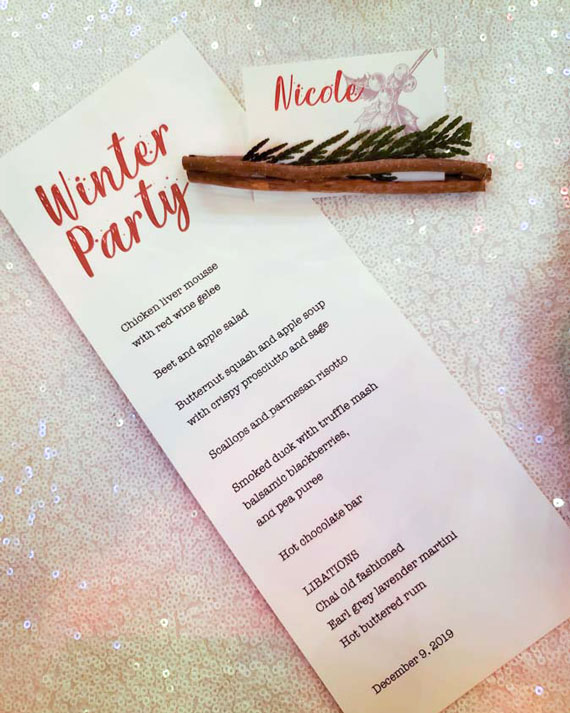 Nicole
Winter
Party
Chicken liver mousse
with red wine gelee
Beet and apple salad
Butternut squash and apple soup
with crispy prosciutto and sage
Scallops and parmesan risotto
Smoked duck with truffle mash
balsamic blackberries,
and pea puree
Hot chocolate bar
LIBATIONS
Chai old fashioned
Earl grey lavender martini
Hot buttered rum
December 9, 2019